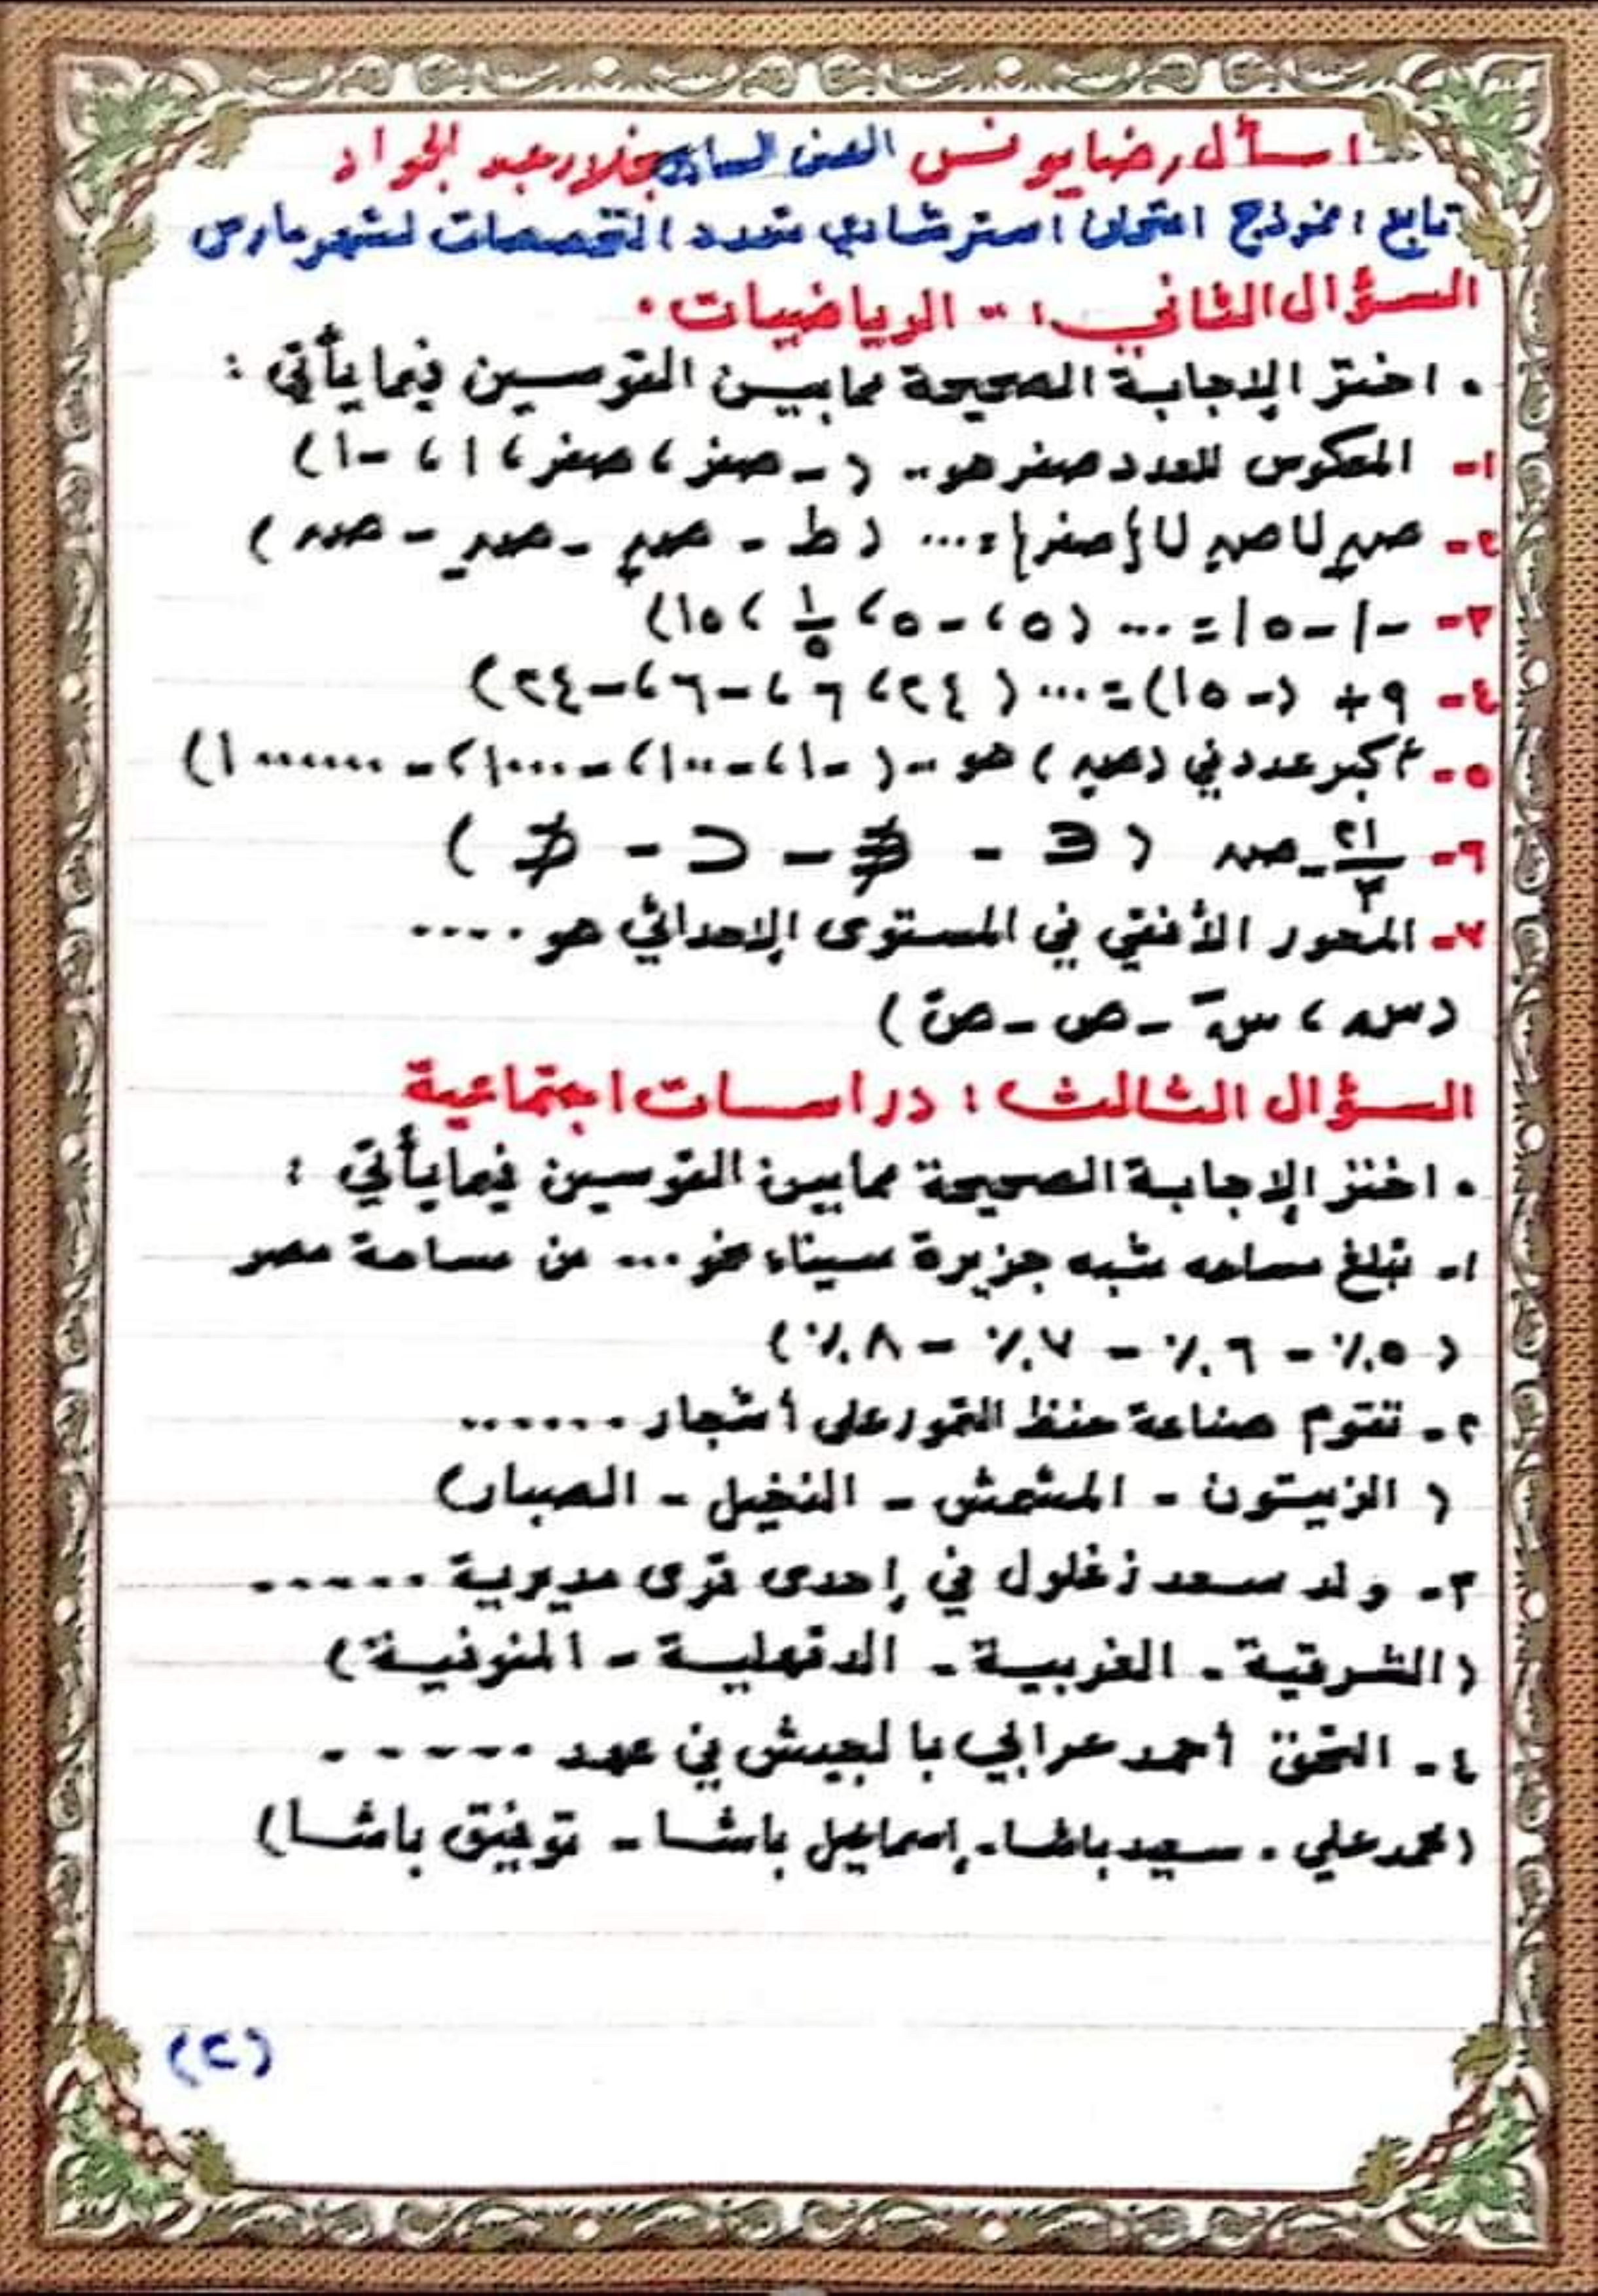 اسأل رضا يونس الصف السادس بجلار عبد الجواد
تابع: نموذج امتحان استرشادي متعدد التخصصات لشهر مارس
السؤال الثاني: - الرياضيات.
• اختر الإجابة الصحيحة مما بين القوسين فيما يأتي :
١- المعكوس للعدد صفر هو .. ( - صفر ، صفر ، ١ ، -١ )
٢- صـ+ ∪ صـ- ∪ {صفر} = ... ( ط - صـ+ - صـ- - صـ )
٣- -|-٥| = ... ( ٥ ، -٥ ، ١/٥ ، ١٥ )
٤- ٩ + (-١٥) = ... ( ٢٤ ، ٦ ، -٦ ، -٢٤ )
٥- أكبر عدد في (صـ-) هو .. ( -١ ، -١٠٠ ، -١٠٠٠ ، -١٠٠٠٠٠٠ )
٦- ٢١/٣ - صـ ( ∈ - ∉ - ⊂ - ⊄ )
٧- المحور الأفقي في المستوى الإحداثي هو ....
( س ، سَ - ص - صَ )
السؤال الثالث : دراسات اجتماعية
• اختر الإجابة الصحيحة مما بين القوسين فيما يأتي :
١- تبلغ مساحه شبه جزيرة سيناء نحو ... من مساحة مصر
( ٥٪ - ٦٪ - ٧٪ - ٨٪ )
٢- تقوم صناعة حفظ التمور على أشجار ......
( الزيتون - المشمش - النخيل - الصبار )
٣- ولد سعد زغلول في إحدى قرى مديرية .....
( الشرقية - الغربية - الدقهلية - المنوفية )
٤- التحق أحمد عرابي بالجيش في عهد ......
( محمد علي - سعيد باشا - إسماعيل باشا - توفيق باشا )
(٢)